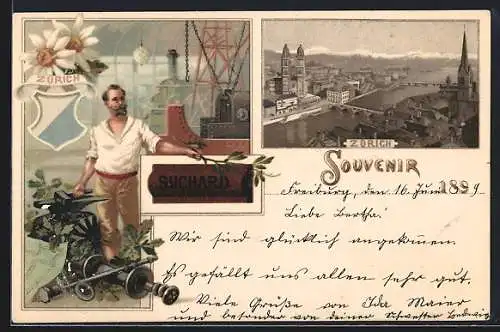 ZÜRICH
ZÜRICH
SOUVENIR
SUCHARD
Freiburg, den 16. Juni 1899.
Liebe Bertha.
Wir sind glücklich angekommen.
Es gefällt uns allen sehr gut.
Viele Grüße von Ida Maier
und besonder von deiner Schwester Hedwig